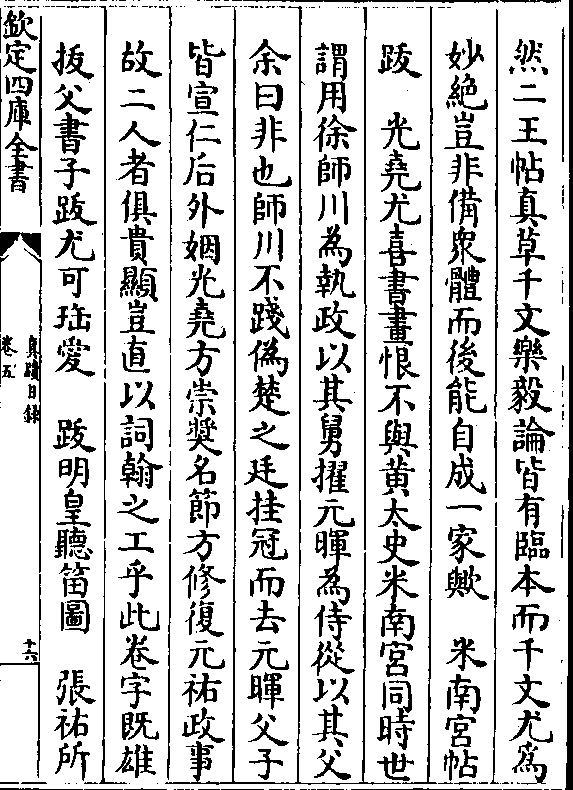 然二王帖真草千文樂毅論皆有臨本而千文尤為
妙絶豈非備衆體而後能自成一家歟　米南宮帖
跋　光堯尤喜書畫恨不與黄太史米南宮同時世
謂用徐師川為執政以其舅擢元暉為侍從以其父
余曰非也師川不踐僞楚之廷挂冠而去元暉父子
皆宣仁后外姻光堯方崇奬名節方修復元祐政事
故二人者俱貴顯豈直以詞翰之工乎此卷字既雄
拔父書子跋尤可珤愛　跋明皇聽笛圖　張祐所
欽定四庫全書
真蹟日録
卷五
十六